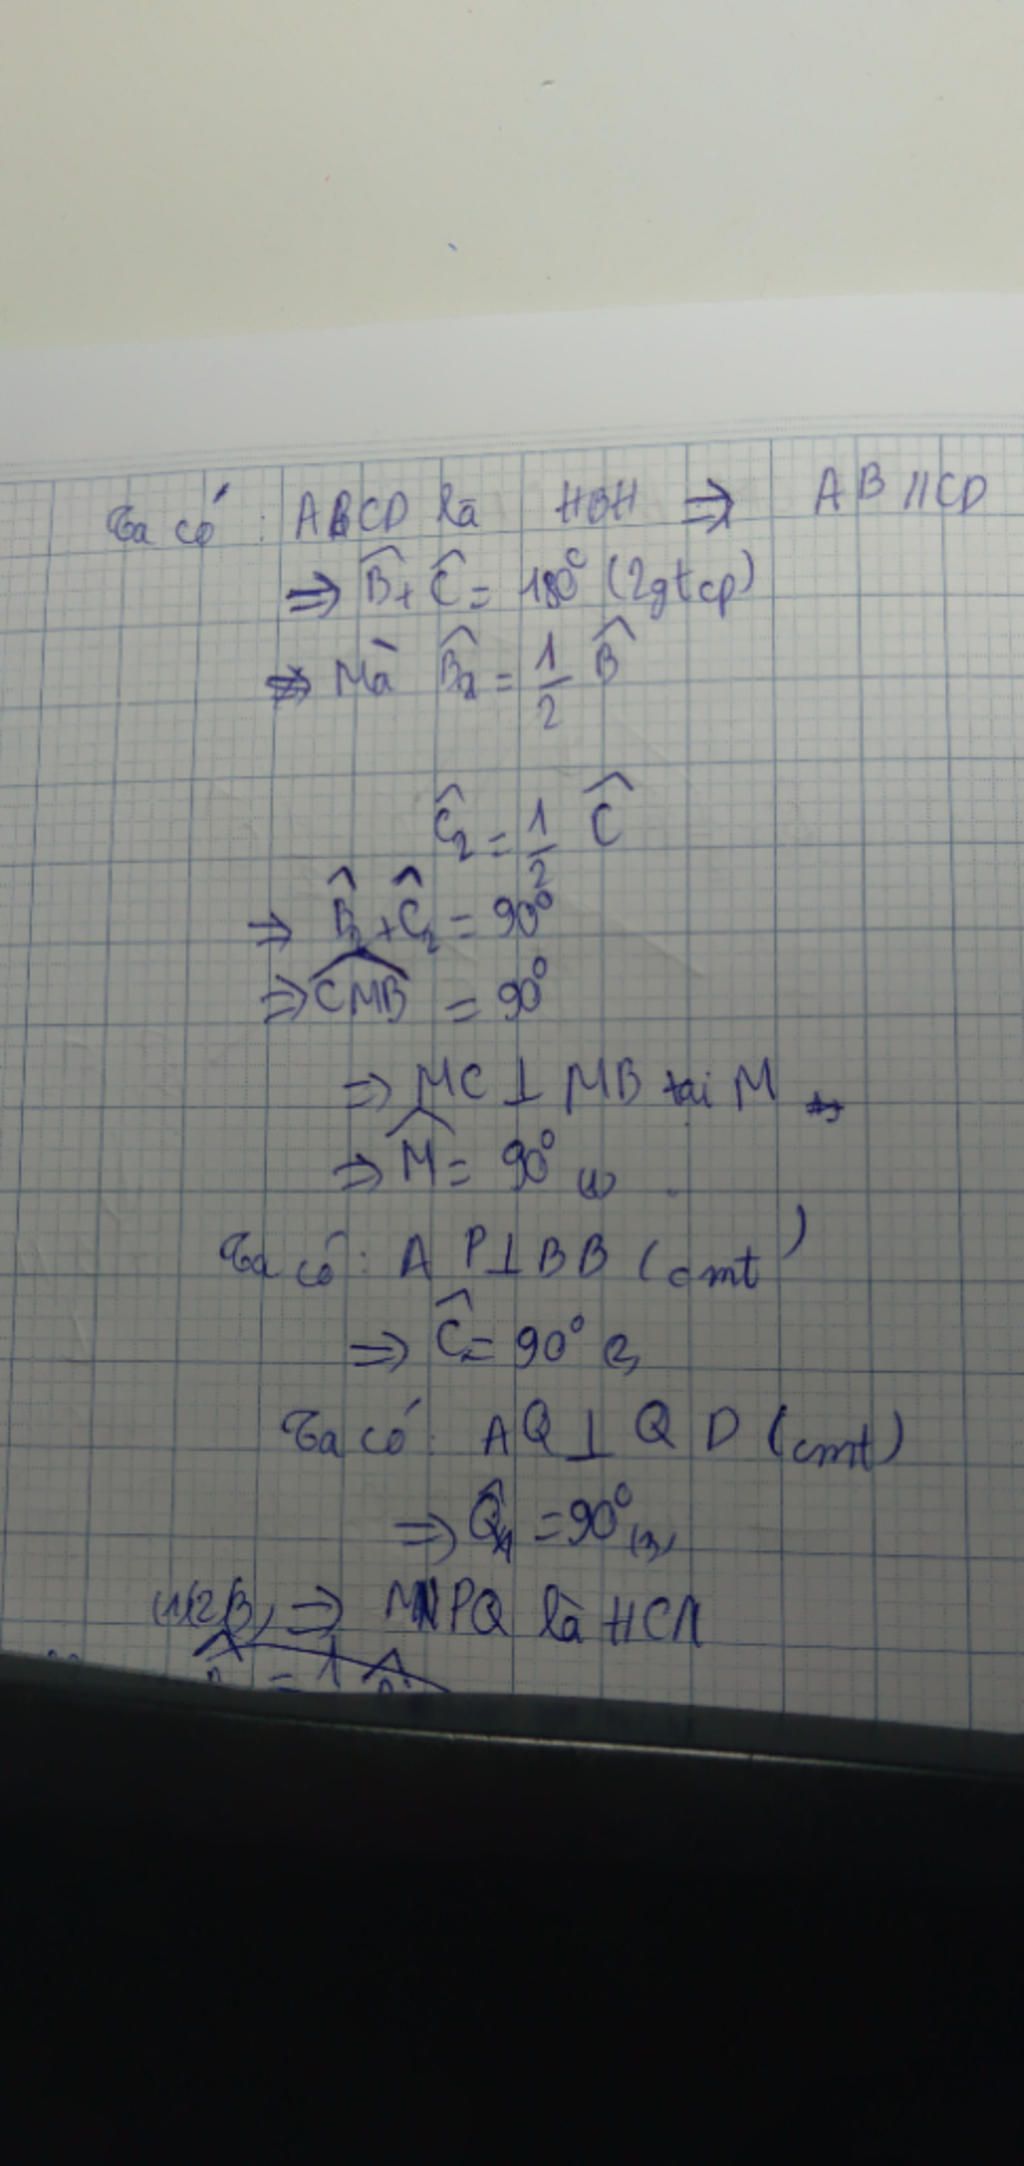 Ta có: ABCD là HBH ⇒ AB // CD
⇒ B̂ + Ĉ = 180° (2gtcp)
Mà B̂₂ = 1/2 B̂
Ĉ₂ = 1/2 Ĉ
⇒ B̂₂ + Ĉ₂ = 90°
⇒ CMB = 90°
⇒ MC ⊥ MB tại M
⇒ M̂ = 90° (1)
Ta có: AP ⊥ BB (cmt)
⇒ Ĉ = 90° (2)
Ta có: AQ ⊥ QD (cmt)
⇒ Q̂₁ = 90° (3)
(1)(2)(3) ⇒ MNPQ là HCN